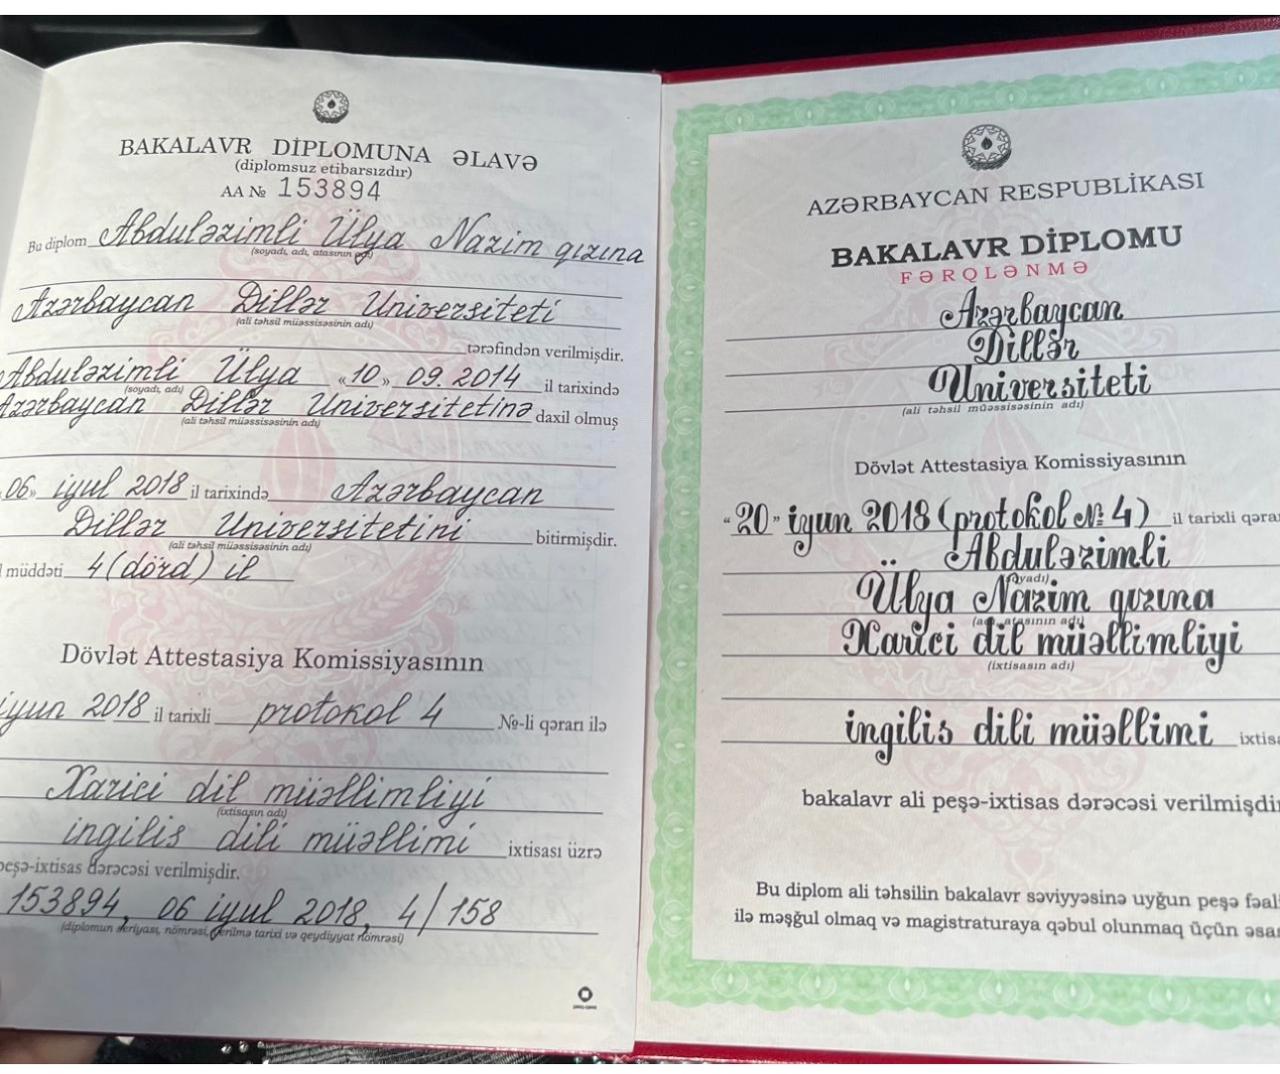 BAKALAVR DİPLOMUNA ƏLAVƏ
(diplomsuz etibarsızdır)
AA № 153894
Bu diplom Abduləzimli Ülya Nazim qızına
(soyadı, adı, atasının adı)
Azərbaycan Dillər Universiteti
(ali təhsil müəssisəsinin adı)
tərəfindən verilmişdir.
Abduləzimli Ülya «10» 09. 2014 il tarixində
(soyadı, adı)
Azərbaycan Dillər Universitetinə daxil olmuş
(ali təhsil müəssisəsinin adı)
06» iyul 2018 il tarixində Azərbaycan
Dillər Universitetini bitirmişdir.
(ali təhsil müəssisəsinin adı)
müddəti 4 (dörd) il
Dövlət Attestasiya Komissiyasının
iyun 2018 il tarixli protokol 4 №-li qərarı ilə
Xarici dil müəllimliyi
(ixtisasın adı)
ingilis dili müəllimi ixtisası üzrə
peşə-ixtisas dərəcəsi verilmişdir.
153894, 06 iyul 2018, 4/158
(diplomun seriyası, nömrəsi, verilmə tarixi və qeydiyyat nömrəsi)
AZƏRBAYCAN RESPUBLİKASI
BAKALAVR DİPLOMU
FƏRQLƏNMƏ
Azərbaycan
Dillər
Universiteti
(ali təhsil müəssisəsinin adı)
Dövlət Attestasiya Komissiyasının
«20» iyun 2018 (protokol № 4) il tarixli qərar
Abduləzimli
(soyadı)
Ülya Nazim qızına
(adı, atasının adı)
Xarici dil müəllimliyi
(ixtisasın adı)
ingilis dili müəllimi ixtisa
bakalavr ali peşə-ixtisas dərəcəsi verilmişdi
Bu diplom ali təhsilin bakalavr səviyyəsinə uyğun peşə fəal
ilə məşğul olmaq və magistraturaya qəbul olunmaq üçün əsas